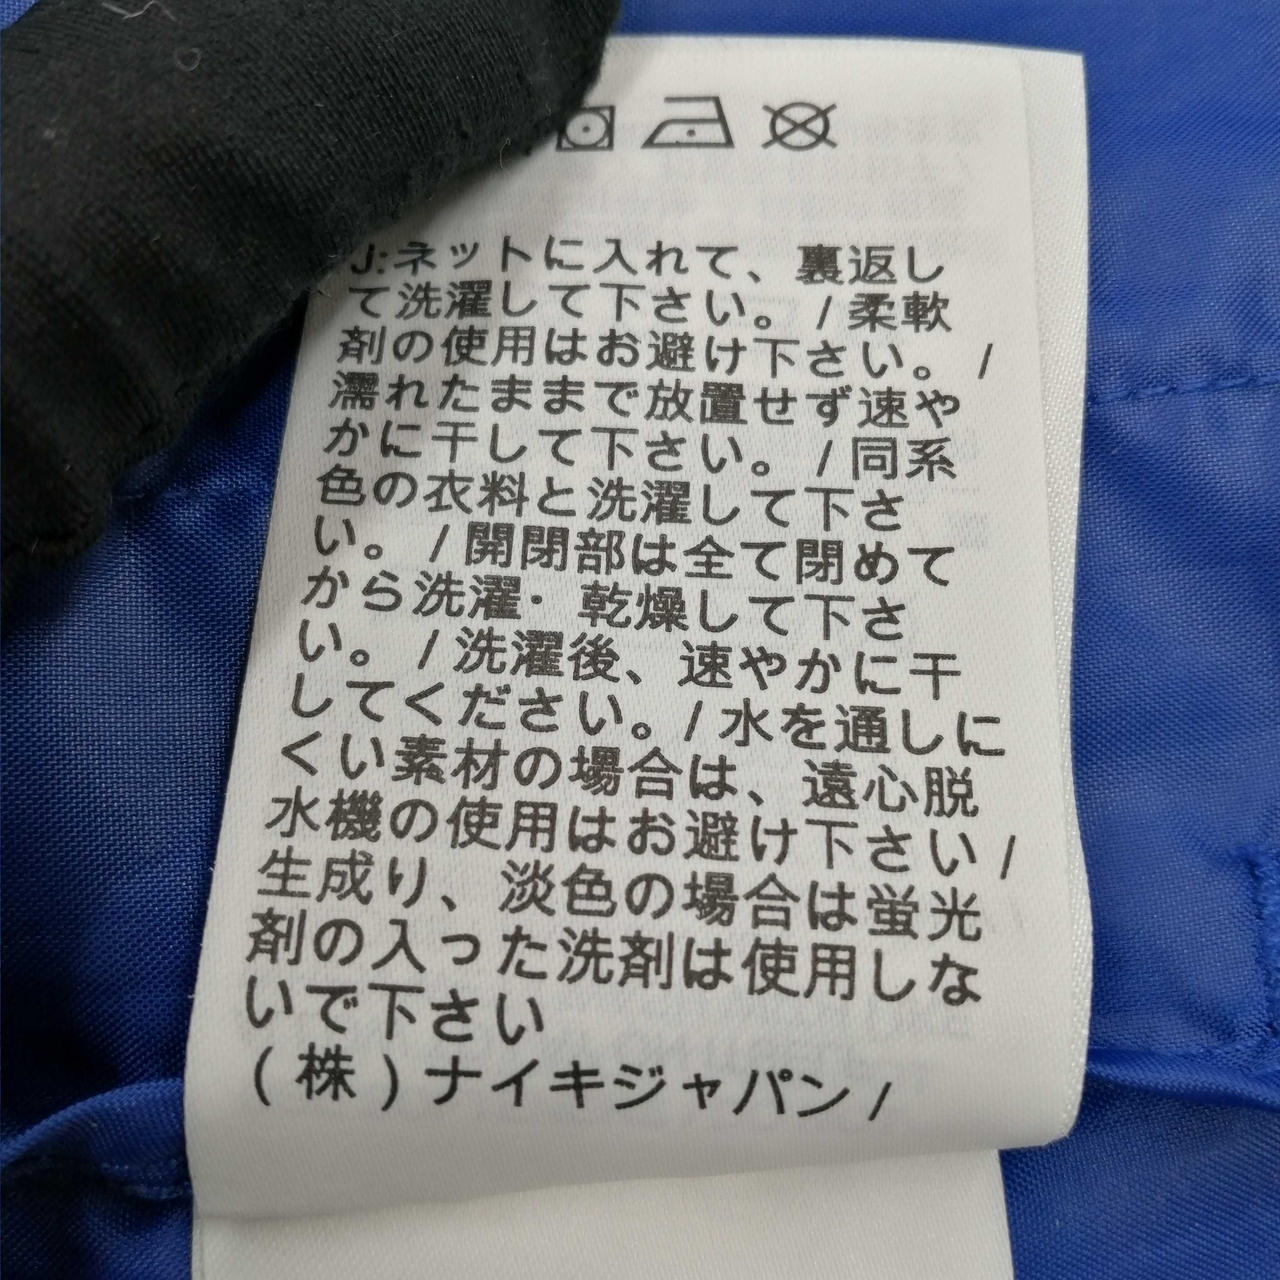 J:ネットに入れて、裏返し
て洗濯して下さい。/柔軟
剤の使用はお避け下さい。/
濡れたままで放置せず速や
かに干して下さい。/同系
色の衣料と洗濯して下さ
い。/開閉部は全て閉めて
から洗濯・乾燥して下さ
い。/洗濯後、速やかに干
してください。/水を通しに
くい素材の場合は、遠心脱
水機の使用はお避け下さい/
生成り、淡色の場合は蛍光
剤の入った洗剤は使用しな
いで下さい
(株)ナイキジャパン/